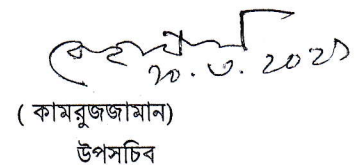 ২০.৩.২০২১
( কামরুজজামান)
উপসচিব